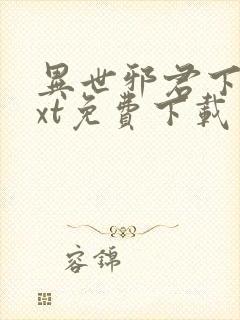 異世邪君下
xt免費下載
容錦